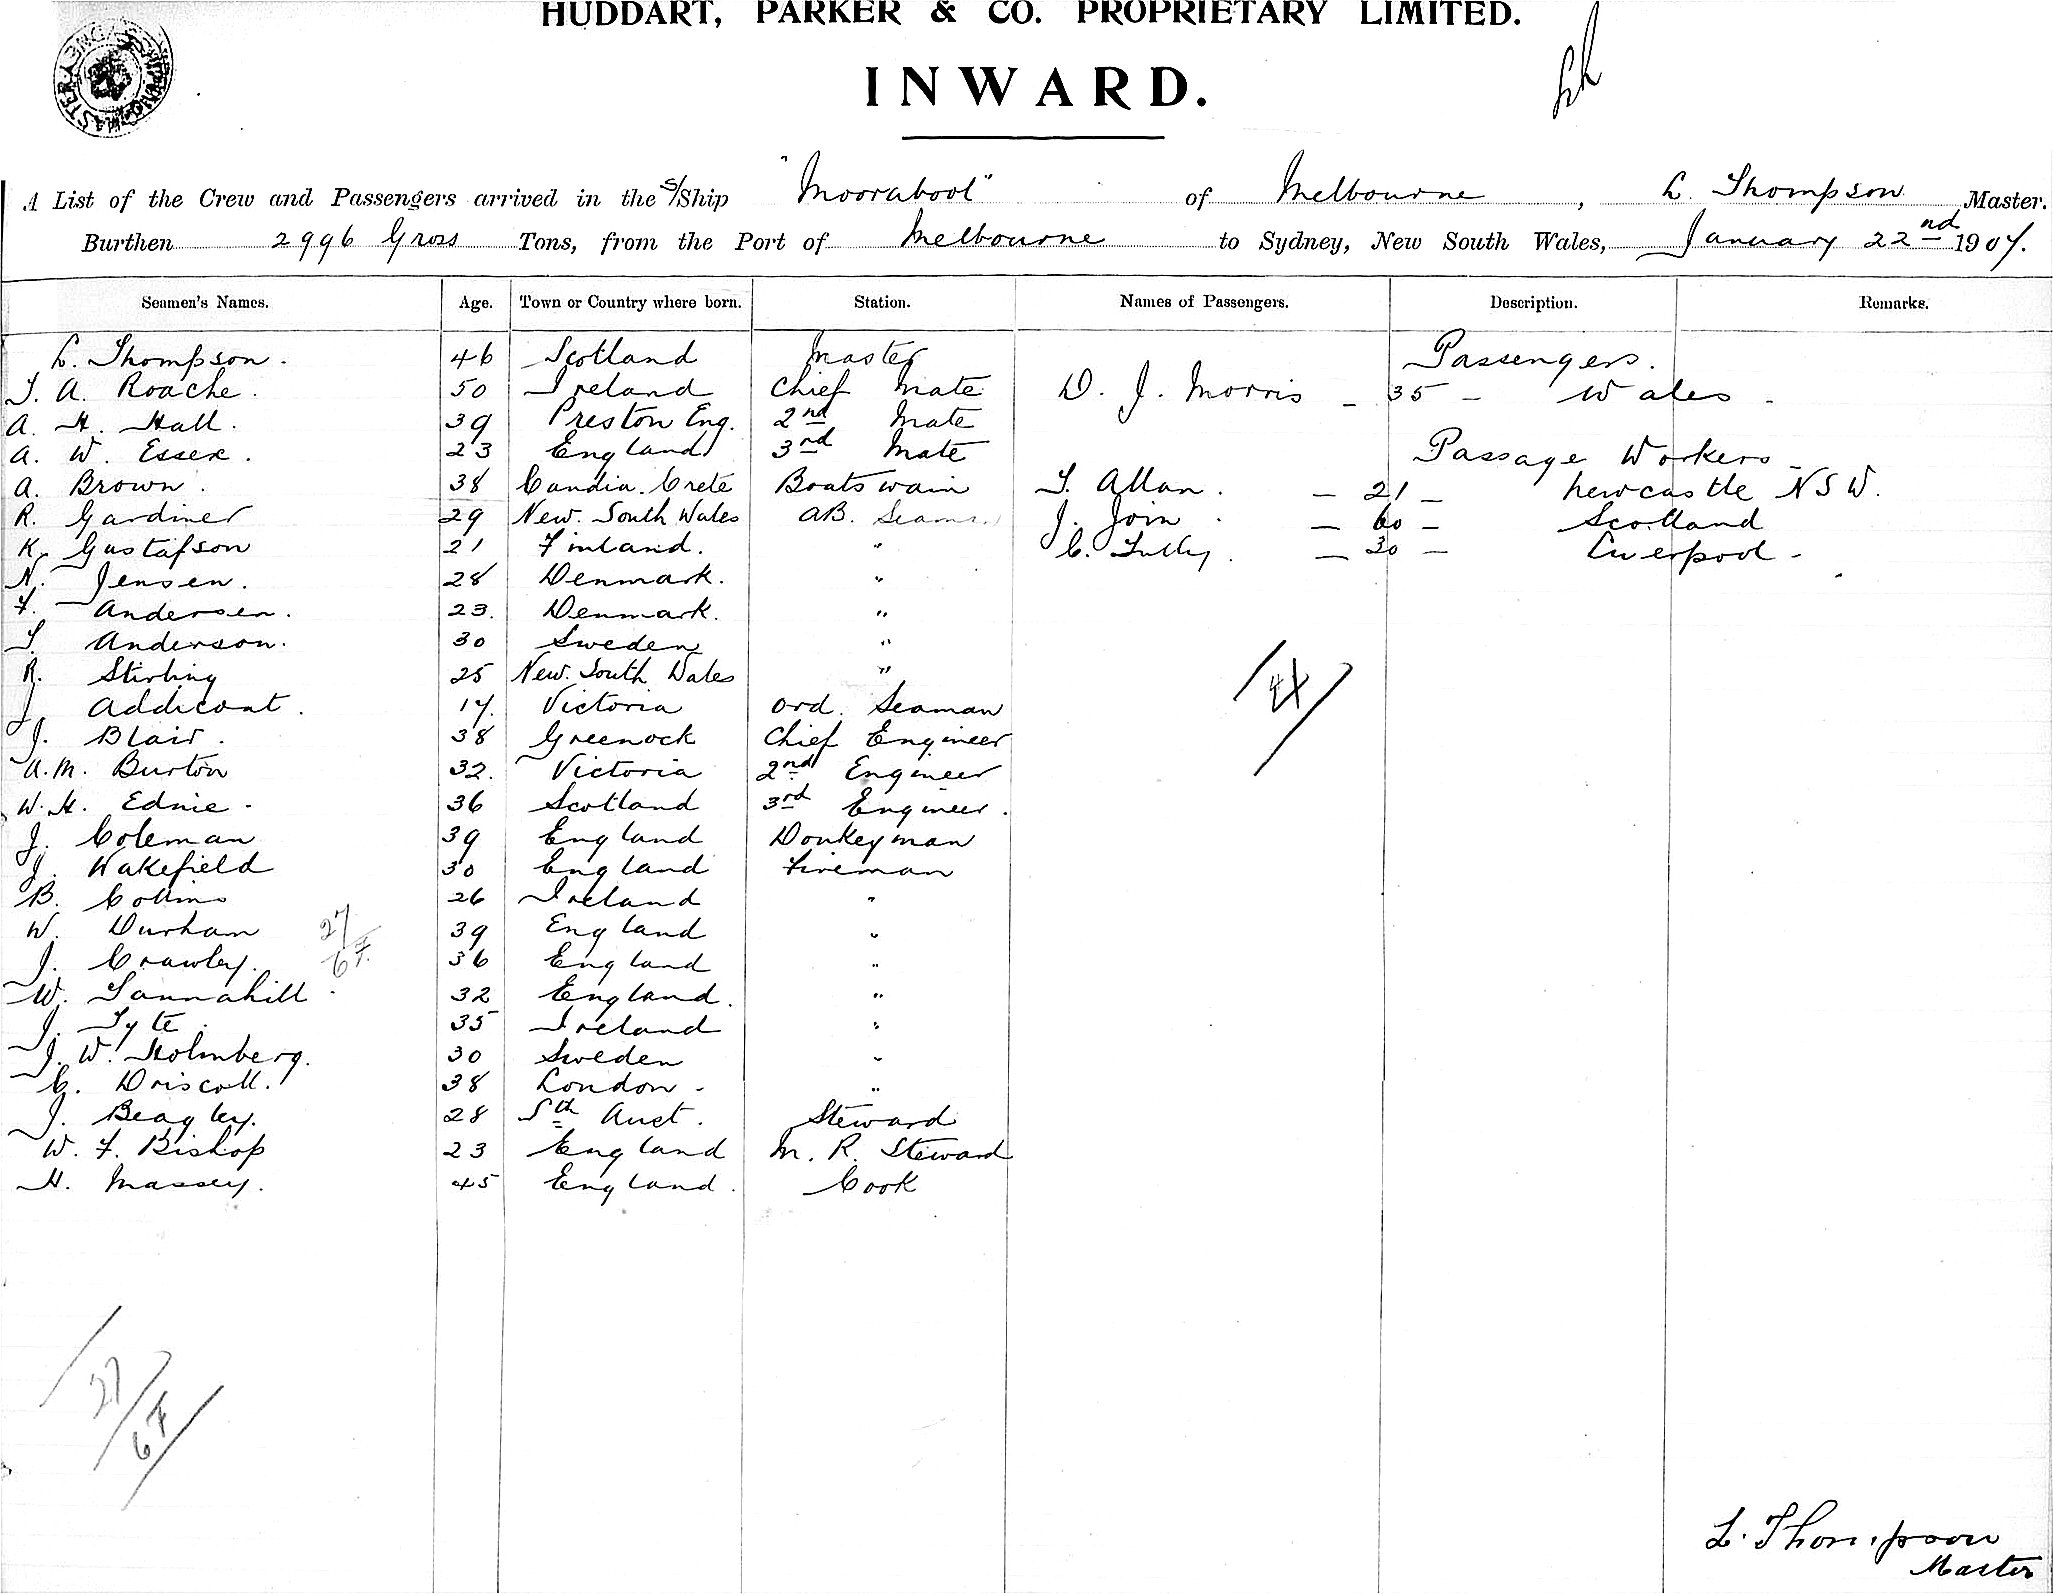 HUDDART, PARKER & CO. PROPRIETARY LIMITED.
INWARD.
A List of the Crew and Passengers arrived in the S/Ship "Moorabool" of Melbourne, L. Thompson Master.
Burthen 2996 Gross Tons, from the Port of Melbourne to Sydney, New South Wales, January 22nd 1907.
Seamen's Names. Age. Town or Country where born. Station. Names of Passengers. Description. Remarks.
L. Thompson. 46 Scotland Master Passengers.
T. A. Roache. 50 Ireland Chief Mate D. J. Morris - 35 - Wales -
A. H. Hall. 39 Preston Eng. 2nd Mate
A. W. Essex. 23 England 3rd Mate Passage Workers -
A. Brown. 38 Candia. Crete Boatswain T. Allan. - 21 - Newcastle NSW.
R. Gardiner 29 New. South Wales AB. Seaman J. Join. - 60 - Scotland
K. Gustafson 21 Finland. " C. Tully. - 30 - Liverpool -
N. Jensen. 28 Denmark. "
F. Andersen. 23. Denmark. "
T. Anderson. 30 Sweden "
R. Stirling 25 New. South Wales "
J. Addicoat. 17. Victoria Ord. Seaman
J. Blair. 38 Greenock Chief Engineer
A. M. Burton 32. Victoria 2nd Engineer
W. H. Ednie. 36 Scotland 3rd Engineer.
J. Coleman 39 England Donkeyman
J. Wakefield 30 England Fireman
B. Collins 26 Ireland "
W. Durham 27/ 39 England "
J. Crawley. 6F. 36 England "
W. Tannahill. 32 England. "
J. Tyte. 35 Ireland "
J. W. Holmberg. 30 Sweden "
C. Driscoll. 38 London - "
J. Beagley. 28 Sth Aust. Steward
W. F. Bishop 23 England M. R. Steward
H. Massey. 45 England. Cook
27/
6F
L. Thompson
Master